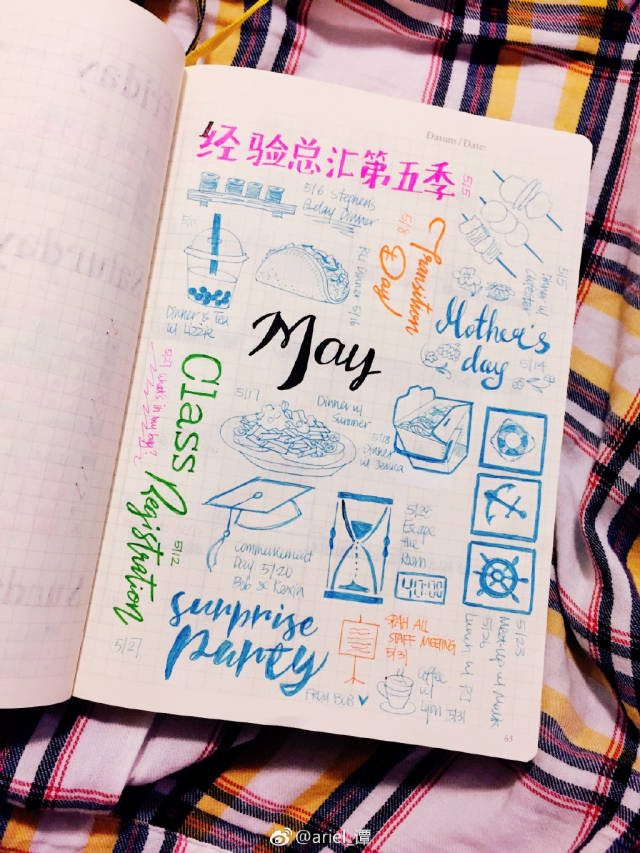 Friday
Saturday
Sunda
Datum / Date:
经验总汇第五季
5/5
5/6 Stephen's
B-day Dinner
5/8
Transition
Day
5/5
Dinner w/
Dinner & Tea
w/ Lizzie
PJ Dinner 5/16
Mother's
day
5/14
May
5/27 What's in my bag?
Class
Registration
5/12
5/17
Dinner w/
Summer
5/18
Dinner
w/ Jessica
Commencement
Day 5/20
Bob & Kexin
5/29
Escape
the
Room
47:00
surprise
party
5/27
FROM BOB
ALL
STAFF MEETING
5/31
Coffee
w/
Lynn 5/31
5/26
Lunch w/ PJ
5/25
Meet-up w/
63
@ariel_谭